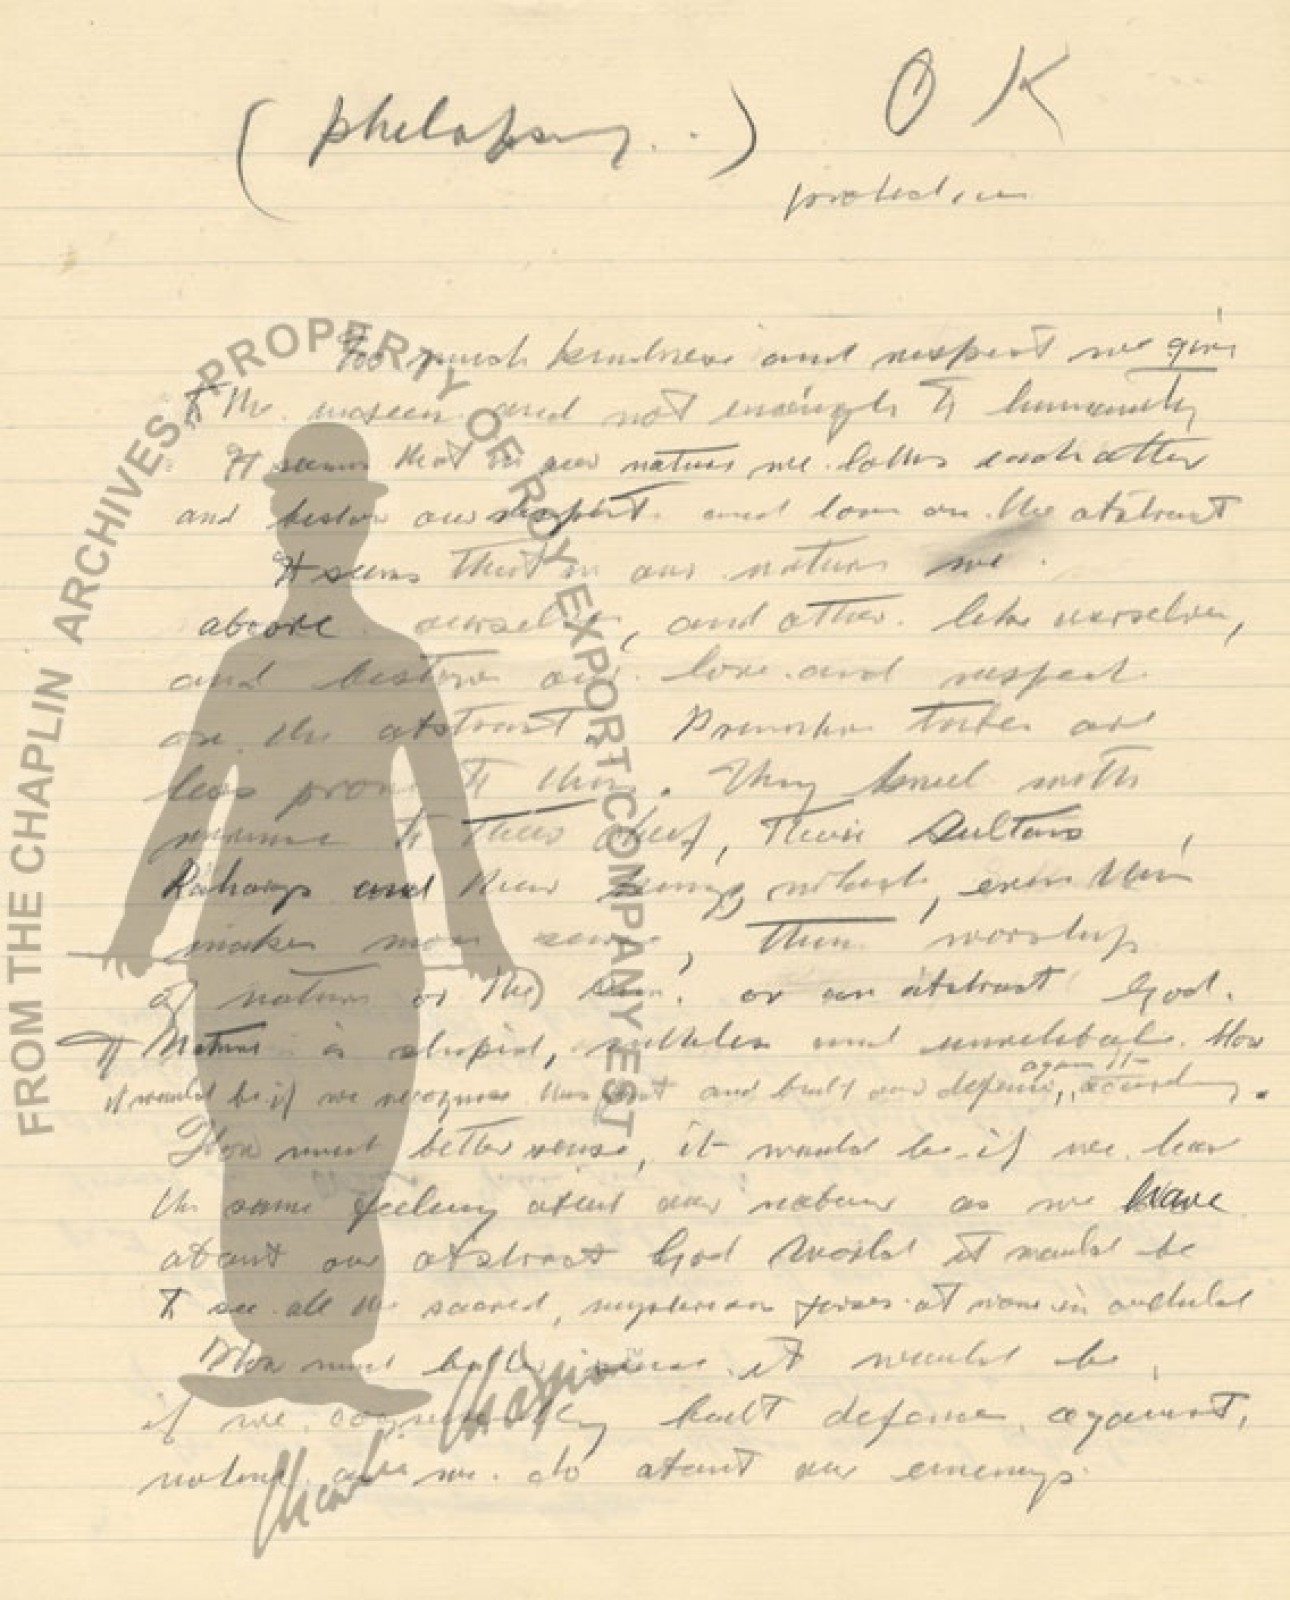 O K
(philophy..)
Too much kindness and respect we give
to the unseen and not enough to humanity
It seems that in our nature we each other
and bestow our respect and love on the abstract
It seems that in our nature we
abore ourselves, and other like ourselves,
and bestow our love and respect
on the abstract. Primitive tribes are
less prone to this. They kneel with
to their chief, their Sultans,
Rahargs and their kings, even this
makes more sense, than worship
of nature or the sun. or an abstract God.
If Nature is stupid, ruthless and How
it would be if we recognise this and built our defense, against it
How much better sense, it would be if we have
the same feeling about our nature as we have
about our abstract God World it would be
to see all the sacred, mysterious forces at
How much better sense it would be,
if we built defense against,
nature as we do about our enemys.
Charlie Chaplin
FROM THE CHAPLIN ARCHIVES, PROPERTY OF ROY EXPORT COMPANY EST